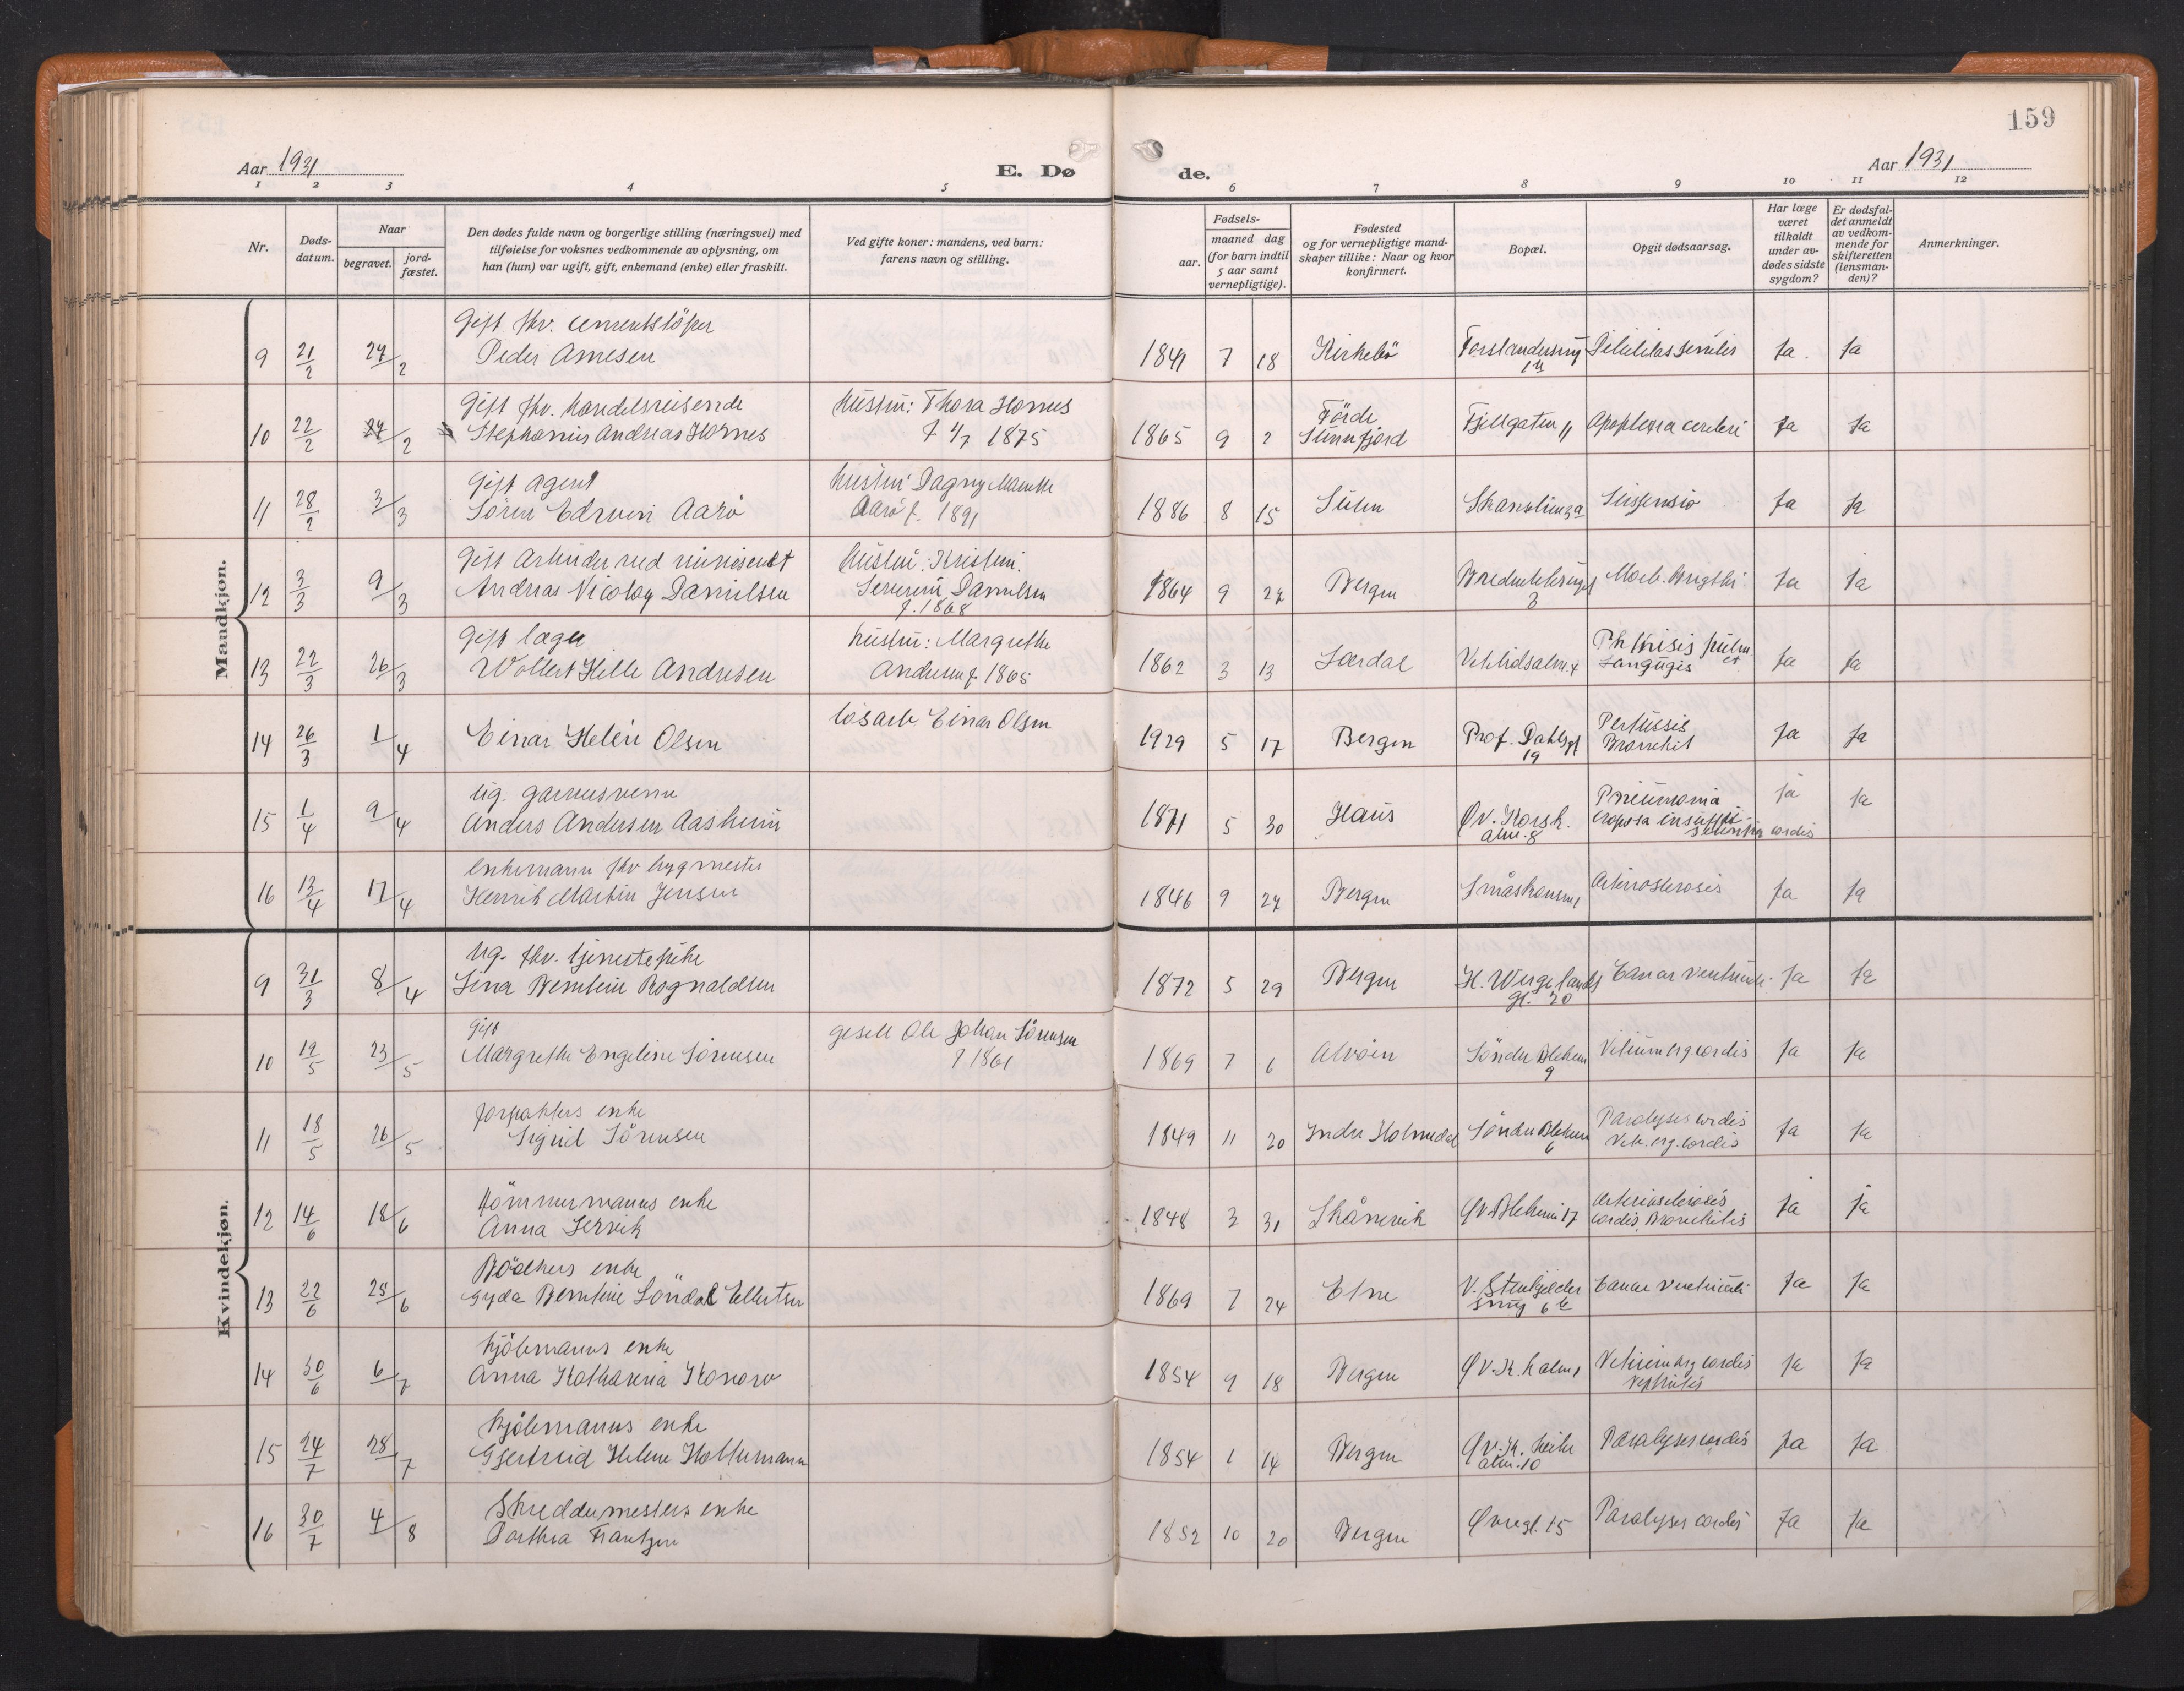 159
Aar 1931
E. Dø
de.
Aar 1931
1 2 3 4 5 6 7 8 9 10 11 12
Nr.
Døds-
datum.
Naar
begravet.
jord-
fæstet.
Den dødes fulde navn og borgerlige stilling (næringsvei) med
tilføielse for voksnes vedkommende av oplysning, om
han (hun) var ugift, gift, enkemand (enke) eller fraskilt.
Ved gifte koner: mandens, ved barn:
farens navn og stilling.
Fødsels-
aar.
maaned dag
(for barn indtil
5 aar samt
vernepligtige).
Fødested
og for vernepligtige mand-
skaper tillike: Naar og hvor
konfirmert.
Bopæl.
Opgit dødsaarsag.
Har læge
været
tilkaldt
under av-
dødes sidste
sygdom?
Er dødsfal-
det anmeldt
av vedkom-
mende for
skifteretten
(lensman-
den)?
Anmerkninger.
Mandkjøn.
Gift fhv. cementstöper
9 21/2 27/2 Peder Arnesen 1841 7 18 Kirkebö Ja Ja
Gift fhv. handelsreisende Hustru: Thora Hornes
10 22/2 27/2 Stephanus Andreas Hornes f 4/7 1875 1865 9 2 Förde
Sunnfjord Fjellgaten 11 Apoplexia cerebri Ja Ja
Gift agent Hustru Dagny
11 28/2 3/3 Sören Edvin Aarö Aarö f. 1891 1886 8 15 Sulen Suspensio Ja Ja
Gift Hustru: Kristine
12 3/3 9/3 Andreas Nicolay Danielsen Severine Danielsen
f. 1868 1864 9 27 Bergen
3 Morb. Brigthi Ja Ja
Gift læge hustru: Margrethe
13 22/3 26/3 Wollert Hille Andresen Andresen f. 1865 1862 3 13 Lærdal Vetrlidsalm. 4 Phthisis pulm et
Ja Ja
løsarb Einar Olsen
14 26/3 1/4 Einar Helén Olsen 1929 5 17 Bergen Prof. Dahlsgt
19 Pertussis
Bronchit Ja Ja
ug. garnersvenn
15 1/4 9/4 Anders Andersen Aasheim 1871 5 30 Haus Øv. Korsk.
alm. 8 Pneumonia
croposa cordis Ja Ja
enkemann fhv bygmester
16 13/4 17/4 Henrik Martin Jensen 1846 9 27 Bergen Arteriosclerosis Ja Ja
Kvindekjøn.
Ug. fhv. tjenestepike
9 31/3 8/4 Lina Berntine Rognaldsen 1872 5 29 Bergen H. Wergelands
gt. 20 Cancer ventriculi Ja Ja
gift gesell Ole Johan Sörensen
10 19/5 23/5 Margrethe Engeline Sörensen f 1861 1869 7 6 Alvöen Söndre Blekevei
9 Vitium org cordis Ja Ja
forpakters enke
11 18/5 26/5 Sigrid Sörensen 1849 11 20 Indre Holmedal Söndre Blekevei
6 Paralyses cordis
Vit. org. cordis Ja Ja
Tömmermanns enke
12 14/6 18/6 Anna Servik 1848 3 31 Skånevik Øv Blekevei 17 Arteriosclerosis
cordis, Bronchitis Ja Ja
Bödkers enke
13 22/6 25/6 Gyda Berntine Löndal Ellertsen 1869 7 24 Etne V. Stenkjelder
smug 6 b Cancer ventriculi Ja Ja
kjöbmanns enke
14 30/6 6/7 Anna Katharina Konow 1854 9 18 Bergen Vitium org cordis
Nephritis Ja Ja
Kjöbmanns enke
15 24/7 28/7 Gjertrud Helene Holtermann 1854 1 14 Bergen Øv. K. kirke
alm. 10 Paralyses cordis Ja Ja
Skreddermesters enke
16 30/7 4/8 Dorthea Frantzen 1852 10 20 Bergen Øvregt. 15 Paralyses cordis Ja Ja